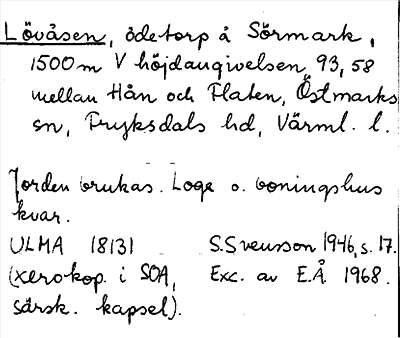 Lövåsen, ödetorp å Sörmark,
1500 m V höjdangivelsen 93,58
mellan Hån och Flaten, Östmarks
sn, Fryksdals hd, Värml. l.
Jorden brukas. Loge o. boningshus
kvar.
ULMA 18131 S.Svensson 1946, s. 17.
(xerokop. i SOA, Exc. av E.Å 1968.
särsk. kapsel).